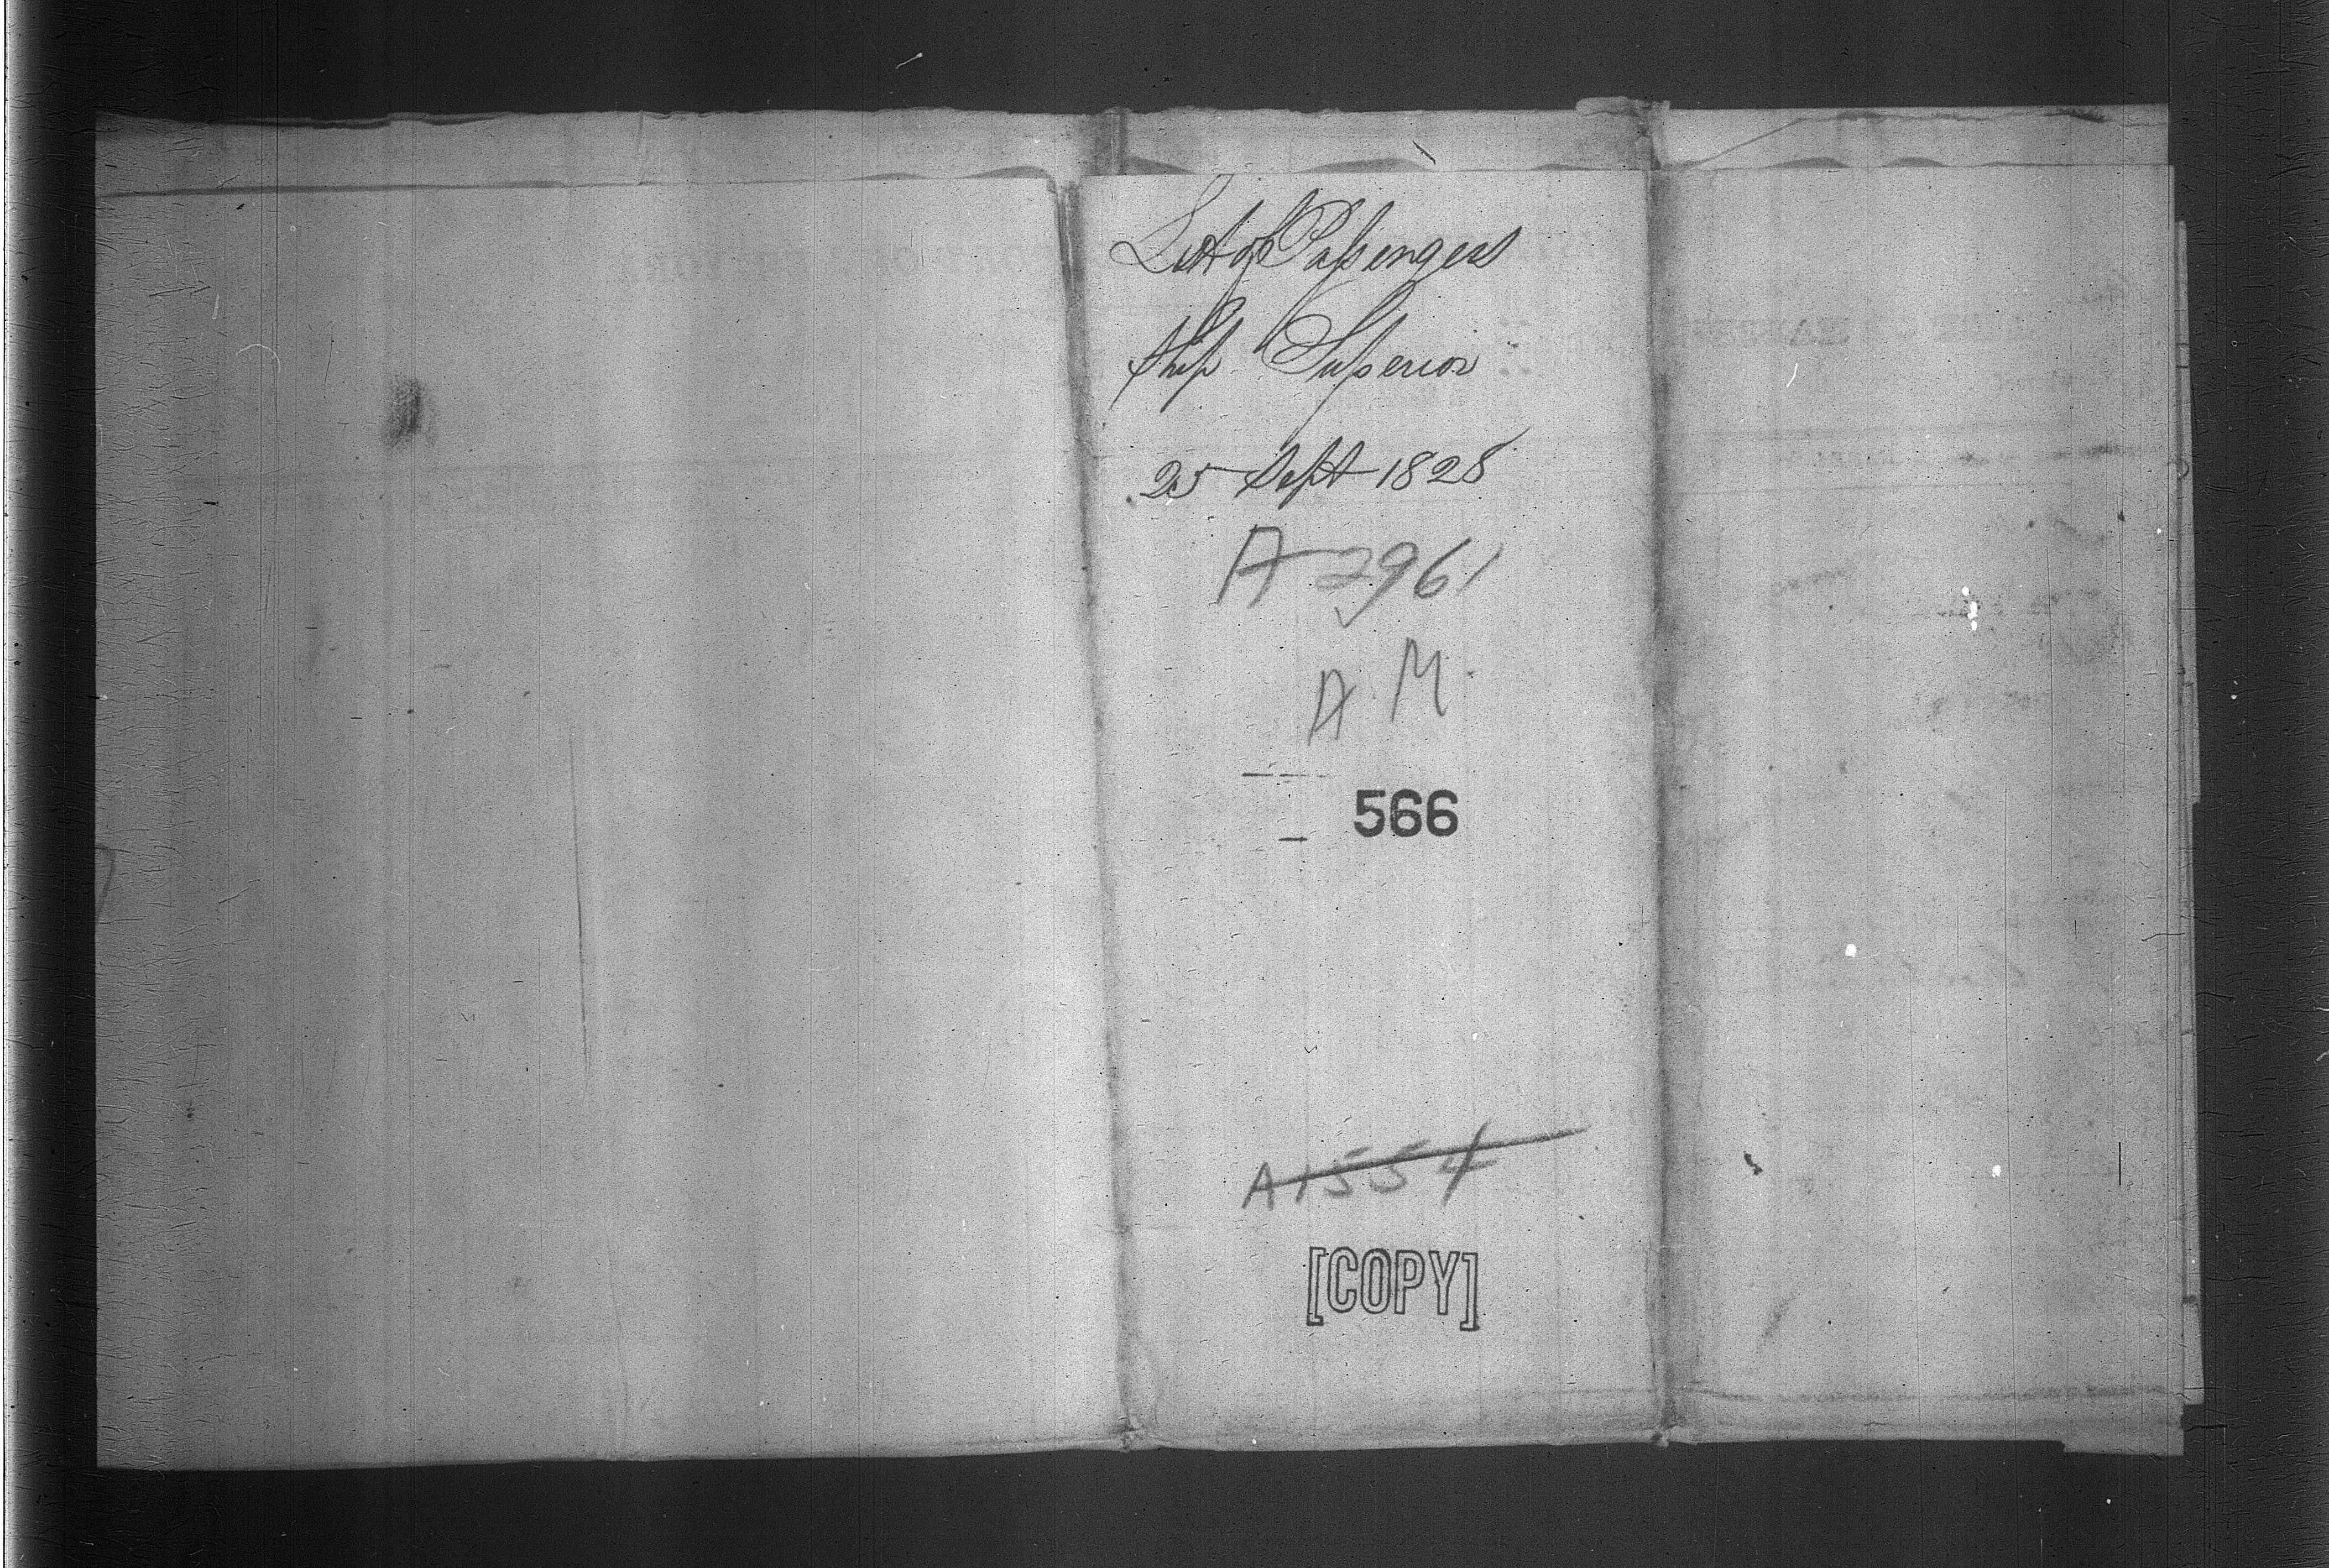 List of Passengers
Ship Superior
25 Sept 1828
A 2961
A. M.
566
A 1554
[COPY]